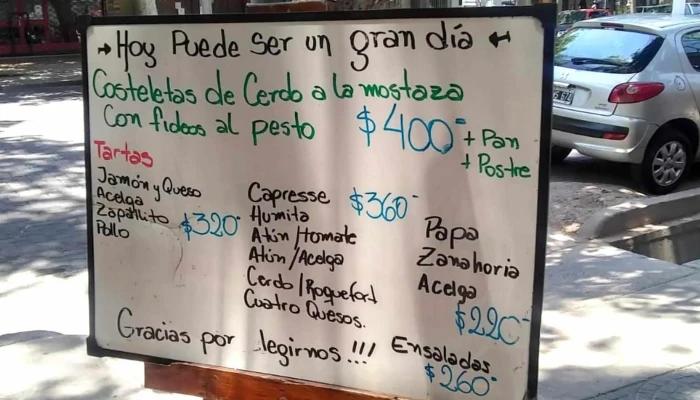 → Hoy Puede ser un gran día ←
Costeletas de Cerdo a la mostaza
Con fideos al pesto $400- + Pan
+ Postre
Tartas
Jamón y Queso
Acelga
Zapallito
Pollo
$320-
Capresse
Humita
Atún/tomate
Atún/Acelga
Cerdo/Roquefort
Cuatro Quesos.
$360-
Papa
Zanahoria
Acelga
$220-
Ensaladas
$260-
Gracias por legirnos!!!